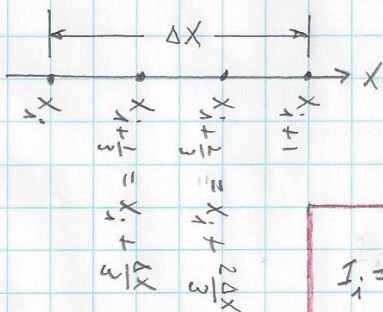 ΔX
X
X_i
X_{i+\frac{1}{3}} = X_i + \frac{ΔX}{3}
X_{i+\frac{2}{3}} = X_i + \frac{2ΔX}{3}
X_{i+1}
I_i =